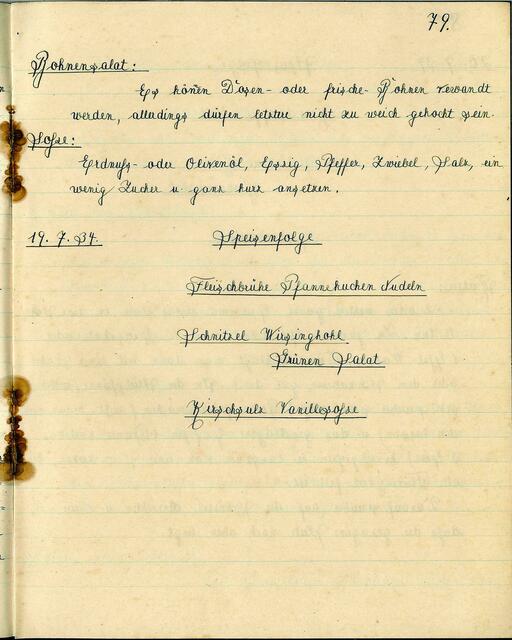 79.
Bohnensalat:
Es könen Dosen- oder frische- Bohnen verwandt
werden, alladings dürfen letztere nicht zu weich gekocht sein.
Soße:
Erdnuß- oder Olivenöl, Essig, Pfeffer, Zwiebel, Salz, ein
wenig Zucker u. ganz kurz ansetzen.
19. 7. 34. Speisenfolge
Fleischbrühe Pfannekuchen Nudeln
Schnitzel Wirsingkohl
Grünen Salat
Kirschsulz Vanillesoße